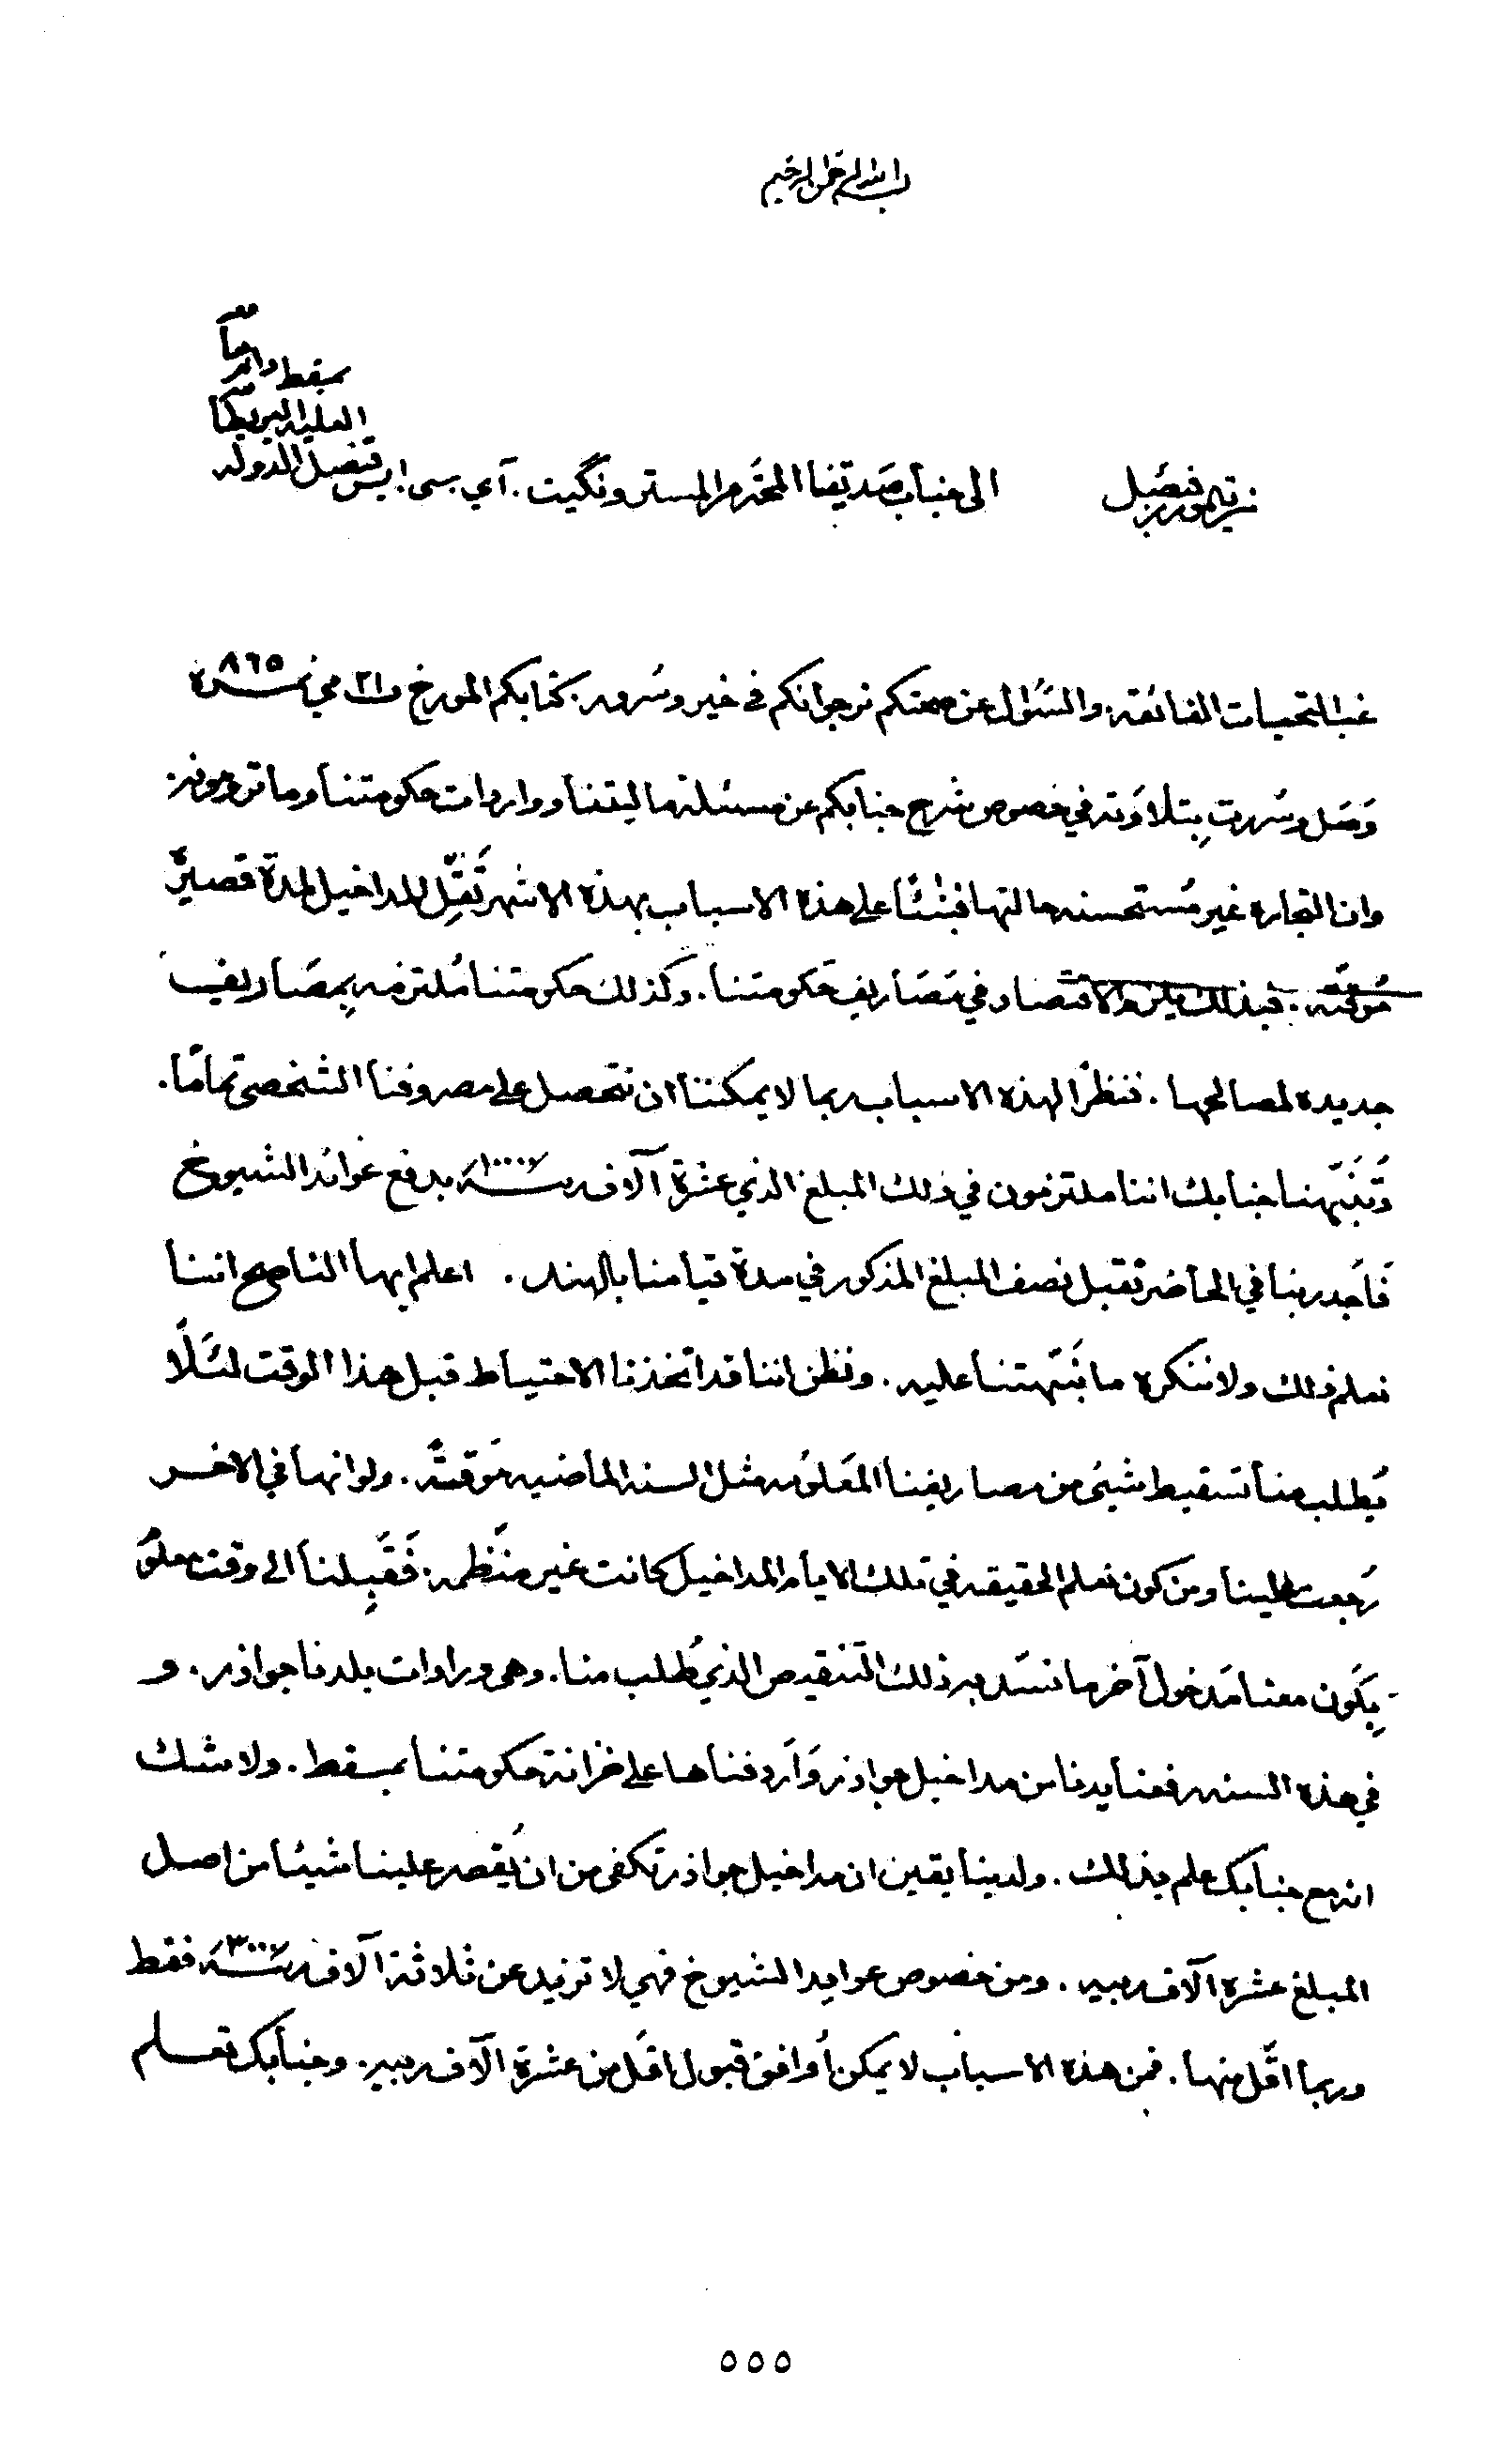 بسم الله الرحمن الرحيم
من تيمور بن فيصل الى جناب صديقنا المحترم المستر ونگيت. آي سى ايس قنصل الدولة
العلية البريطانية
بمسقط دام
غب التحيات الفائقة. والسؤال عن صحتكم نرجو انكم في خير وسرور. كتابكم المورخ ٢١ مي سنة
وَصَل وسُررت بتلاوته في خصوص شرح جنابكم عن مسئلة ماليتنا وواردات حكومتنا وما تروموند.
وان التجاره غير مُستحسنه حالتها فبنٰئًا على هذه الاسباب بهذه الاشهر تَقِّل المداخيل لمدة قصيرة
مُوقته. فبذلك يلزم الاقتصاد في مَصَاريف حَكومتنا. وكذلك حكومتنا مُلتزمه بِمصَاريف
جديده لمصالحها. فنظرًا لهذه الاسباب ربما لا يمكننا ان نتحصل على مصروفنا الشخصي تمامًا.
وتُنَبّهنا جنابك اننا ملتزمون في ذلك المبلغ الذي عشرة آلاف ربية ١٠٠٠٠ بدفع عوائد الشيوخ
فاجدر بنا في الحاضر نقبل نصف المبلغ المذكور في مدة قيامنا بالهند. اعلم ايها الناصح اننا
نعلم ذلك ولا ننكره ما نَبّهتنا عليه. ونظن اننا قد اتخذنا الاحتياط قبل هذا الوقت لئَلّا
يُطلب منا تسقيط شيئ من مصاريفنا المَعلومه مثل السنه الماضيه مَوقتةً. ولو انها في الاخر
رَجعت الينا ومن كون نعلم الحقيقه في تلك الايام المداخيل كانت غير منظّمه. فَقَبِلنا الى وقت معلوم
يِكَون معنا مَدخول آخر ما نسَد به ذلك التنقيص الذي طُلب منا. وهي وراداوات بلدنا جواذر. و
في هذه السنه رفعنا يدنا من مداخيل جواذر وَاَردفناها على خزانة حكومتنا بمسقط. ولا شك
انه مع جنابك علم بذالك. ولدينا يقين ان مداخيل جواذر تكفى من ان يُقصر علينا شيئا من اصل
المبلغ عشره آلاف ربيه. ومن خصوص عوايد الشيوخ فهي لا تزيد عن ثلاثة آلاف ربية ٣٠٠٠ فقط
وربما اقّل منها. فمن هذه الاسباب لا يمكن اُوافق قبول اقَل من عشرة آلاف ربيه. وجنابك تعلم
٥٥٥